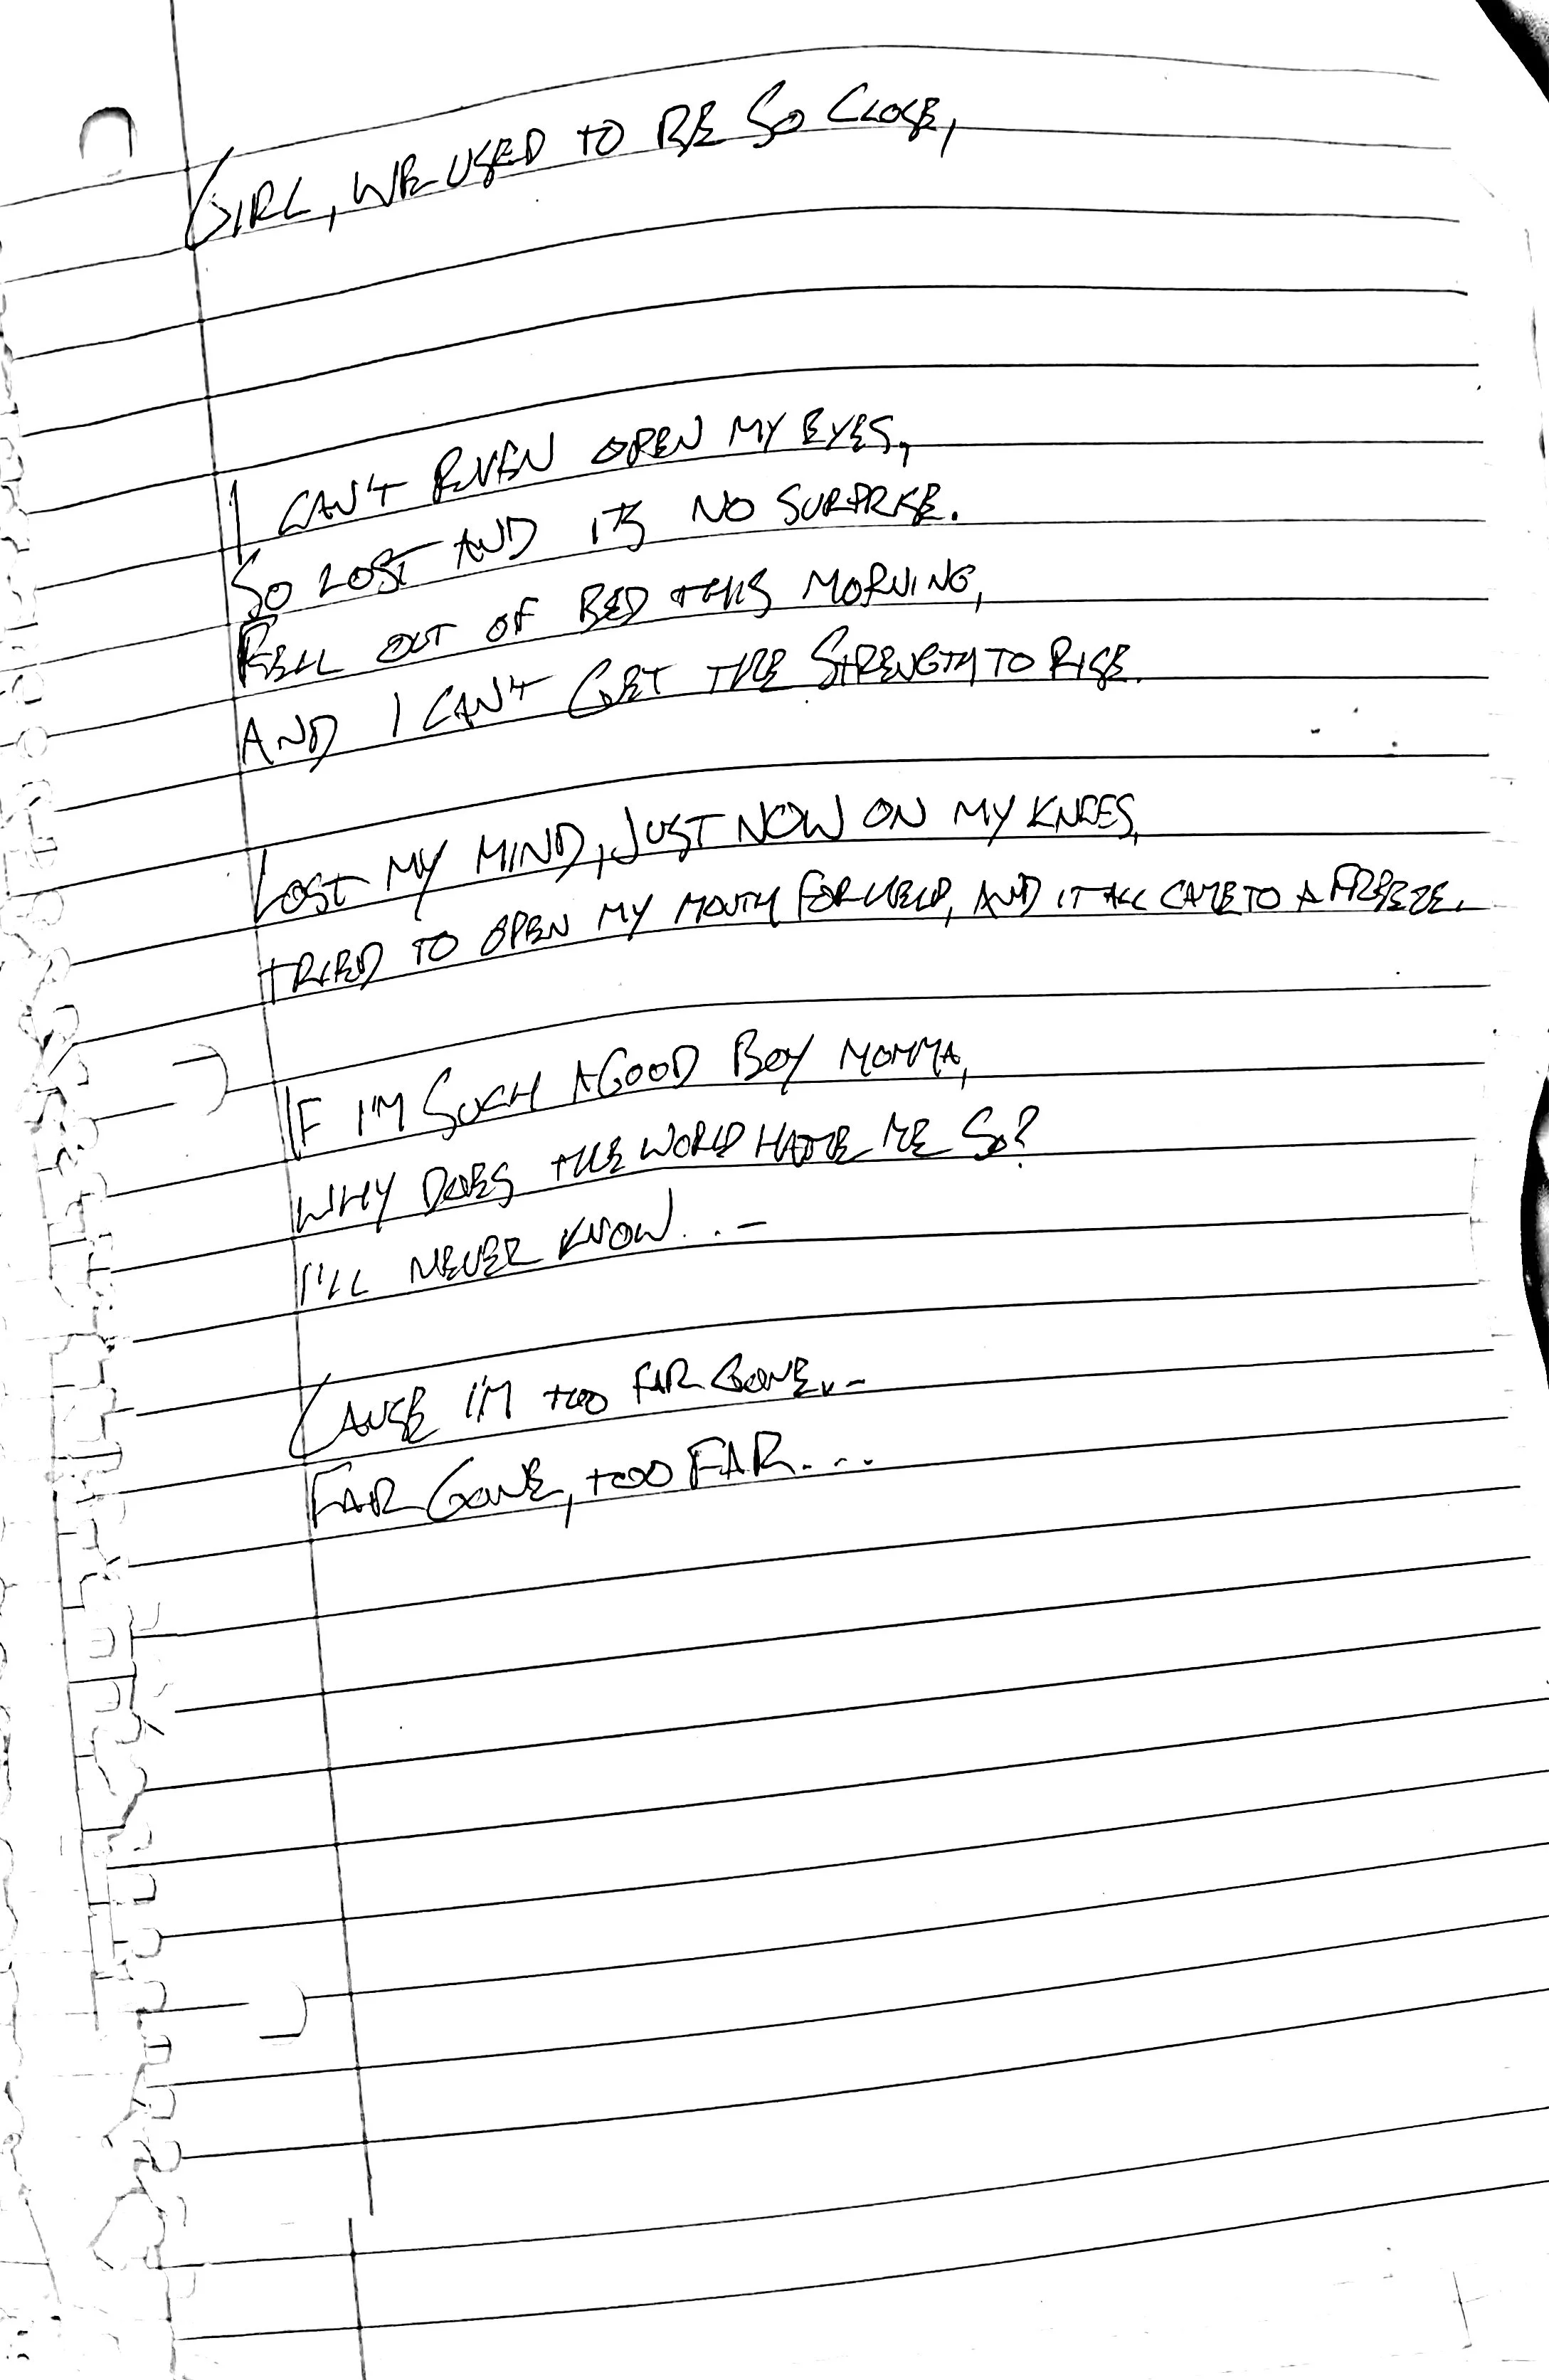 GIRL, WE USED TO BE SO CLOSE,
I CAN'T EVEN OPEN MY EYES,
SO LOST AND IT'S NO SURPRISE.
FELL OUT OF BED THIS MORNING,
AND I CAN'T GET THE STRENGTH TO RISE.
LOST MY MIND, JUST NOW ON MY KNEES,
TRIED TO OPEN MY MOUTH FOR HELP, AND IT ALL CAME TO A FREEZE.
IF I'M SUCH A GOOD BOY MOMMA,
WHY DOES THE WORLD HATE ME SO?
I'LL NEVER KNOW...
CAUSE I'M TOO FAR GONE...
FAR GONE, TOO FAR....